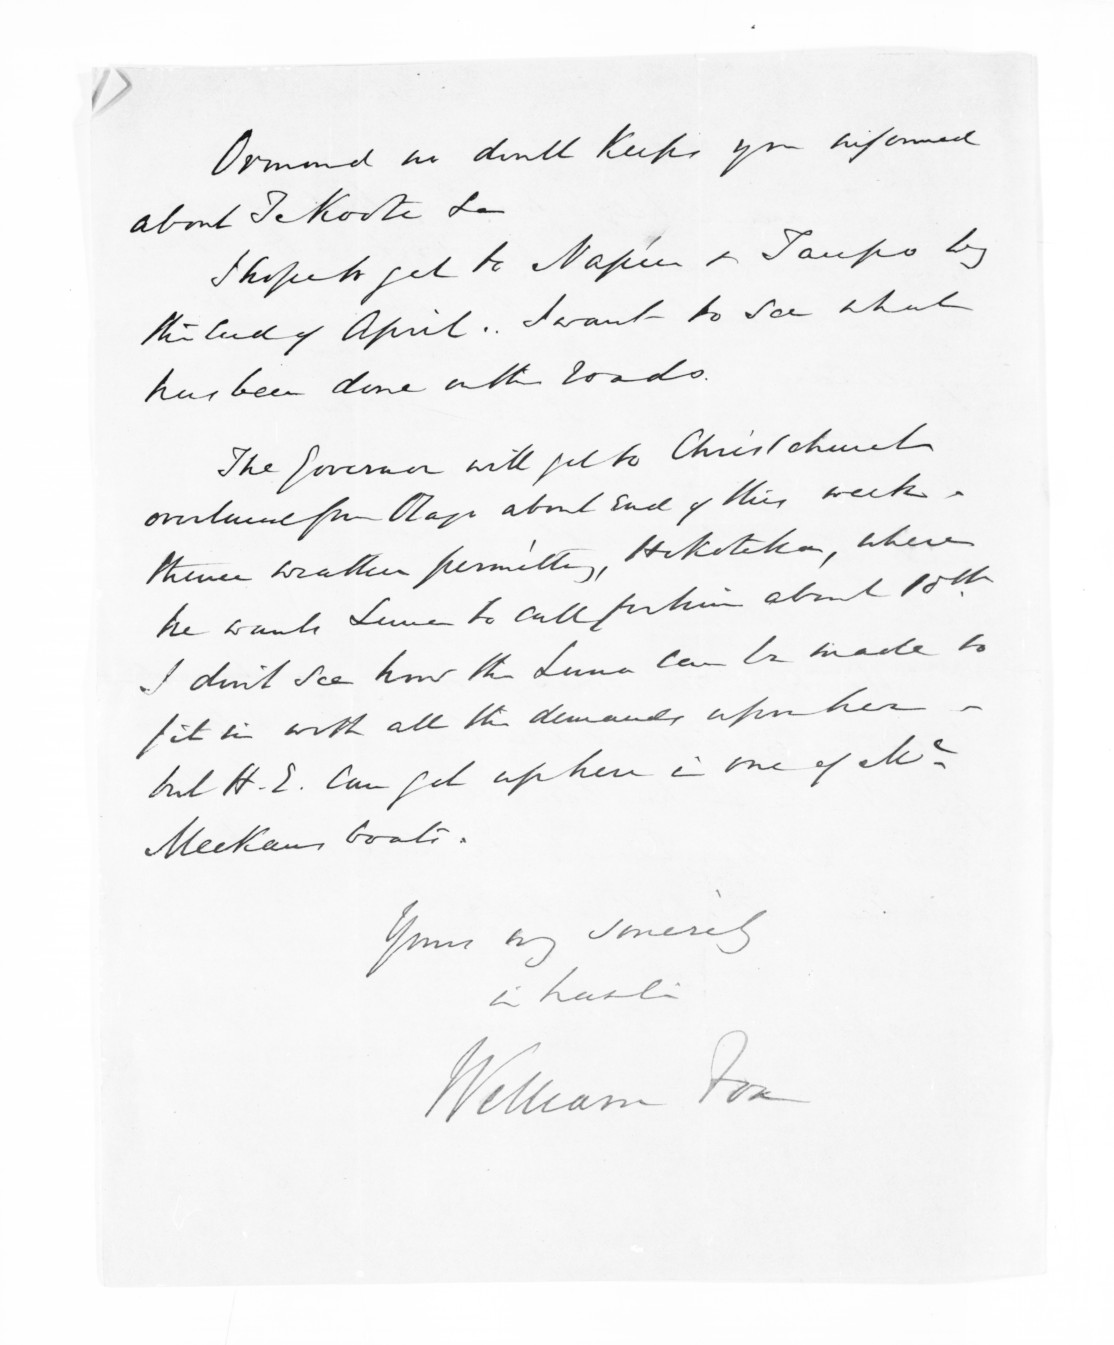 Ormond no doubt keeps you informed
about Te Kooti &c
I hope to get to Napier & Taupo by
the end of April. I want to see what
has been done on the roads.
The Governor will get to Christchurch
overland from Otago about end of this week &
thence weather permitting, Hokitika, where
he wants Luna to call for him about 18th.
I don't see how the Luna can be made to
fit in with all the demands upon her –
but H.E. can get up here in one of Mr
Meekans boats.
Yours very sincerely
in haste
William Fox